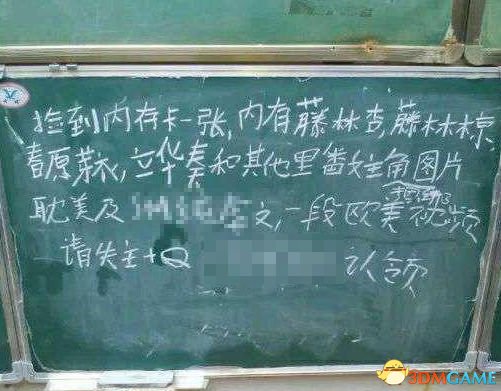 捡到内存卡一张,内有藤林杏,藤林椋
春原芽衣,立华奏和其他里番女主角图片
耽美及文,一段欧美视频
请失主+Q 认领
3DMGAME